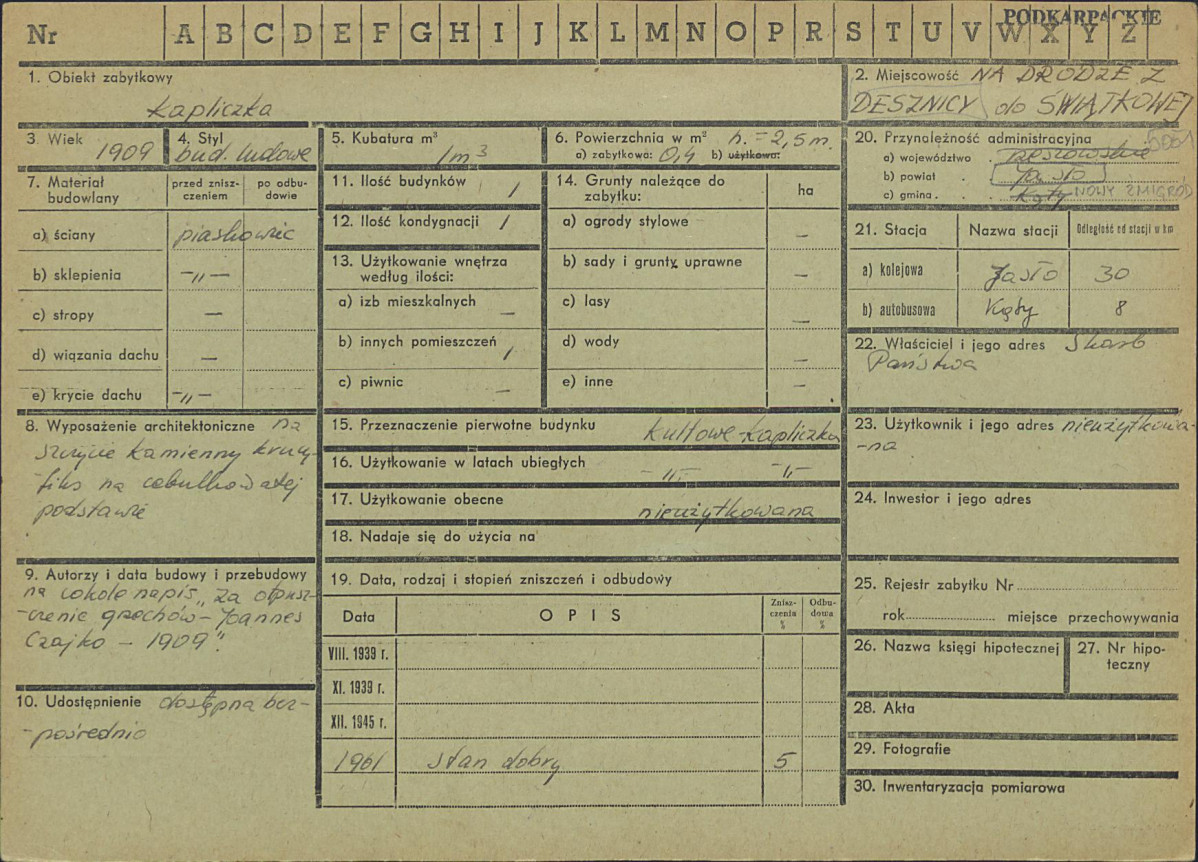 PODKARPACKIE
Nr A B C D E F G H I J K L M N O P R S T U V W X Y Z
1. Obiekt zabytkowy
kapliczka
2. Miejscowość NA DRODZE Z
DESZNICY do ŚWIĄTKOWEJ
3. Wiek
1909
4. Styl
bud. ludowe
5. Kubatura m³
1m³
6. Powierzchnia w m² h. = 2,5 m.
a) zabytkowa: 0,4 b) użytkowa:
7. Materiał budowlany
przed znisz-
czeniem
po odbu-
dowie
a) ściany piaskowiec
b) sklepienia -"-
c) stropy —
d) wiązania dachu —
e) krycie dachu -"-
8. Wyposażenie architektoniczne na
szczycie kamienny krucy-
fiks na cebulkowatej
podstawie
9. Autorzy i data budowy i przebudowy
na cokole napis „Za odpusz-
-czenie grzechów - Joannes
Czajko - 1909".
10. Udostępnienie dostępna bez-
-pośrednio
11. Ilość budynków 1
12. Ilość kondygnacji 1
13. Użytkowanie wnętrza
według ilości:
a) izb mieszkalnych —
b) innych pomieszczeń 1
c) piwnic —
14. Grunty należące do
zabytku:
ha
a) ogrody stylowe —
b) sady i grunty uprawne —
c) lasy —
d) wody —
e) inne —
15. Przeznaczenie pierwotne budynku kultowe-kapliczka
16. Użytkowanie w latach ubiegłych -"- -"-
17. Użytkowanie obecne nieużytkowana
18. Nadaje się do użycia na
19. Data, rodzaj i stopień zniszczeń i odbudowy
Data OPIS Znisz-
czenia
%
Odbu-
dowa
%
VIII. 1939 r.
XI. 1939 r.
XII. 1945 r.
1961 stan dobry 5
20. Przynależność administracyjna
a) województwo . rzeszowskie
b) powiat . Jasło
c) gmina . . Kąty NOWY ŻMIGRÓD
21. Stacja Nazwa stacji Odległość od stacji w km
a) kolejowa Jasło 30
b) autobusowa Kąty 8
22. Właściciel i jego adres Skarb
Państwa
23. Użytkownik i jego adres nieużytkowa-
-na
24. Inwestor i jego adres
25. Rejestr zabytku Nr
rok miejsce przechowywania
26. Nazwa księgi hipotecznej
27. Nr hipo-
teczny
28. Akta
29. Fotografie
30. Inwentaryzacja pomiarowa